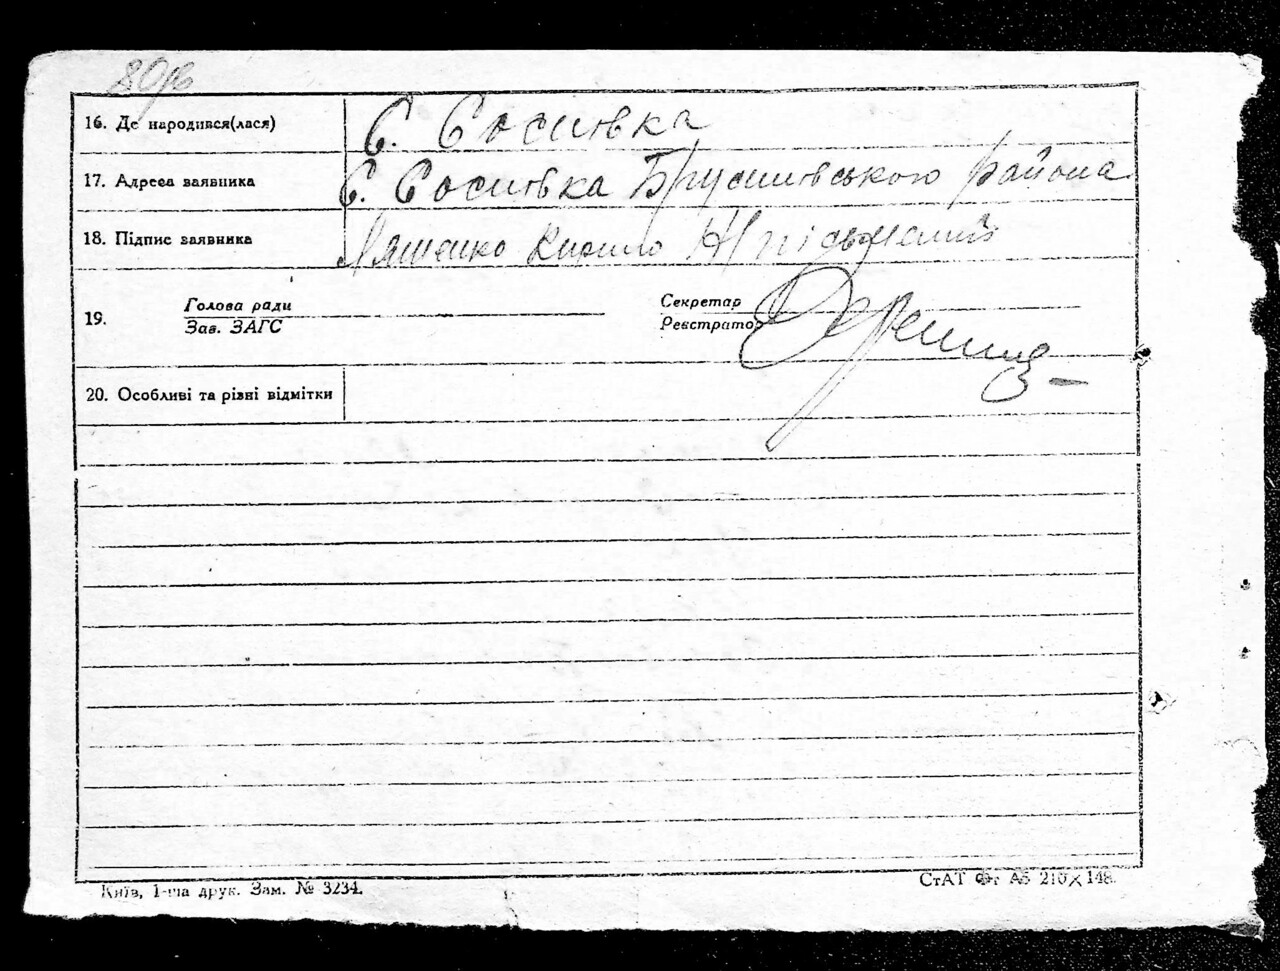 80
16. Де народився(лася) С. Сосновка
17. Адреса заявника С. Сосновка Брусилівського района
18. Підпис заявника Ляшенко Кирило
19. Голова ради Секретар
Зав. ЗАГС Реєстратор
20. Особливі та різні відмітки
Київ, 1-ша друк. Зам. № 3234.
СтАТ Ф. А5 210×148.